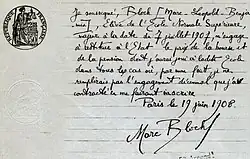 Je soussigné, Bloch (Marc - Léopold - Benja-
min), Élève de l'École Normale Supérieure
à la date du 7 juillet 1907, m'engage
à restituer à l'État le prix de la bourse et
de la pension dont j'aurai joui à ladite École
dans tous les cas où, par mon fait, je ne
remplirais pas l'engagement décennal que j'ai
contracté en me faisant inscrire
Paris le 19 juin 1908.
Marc Bloch